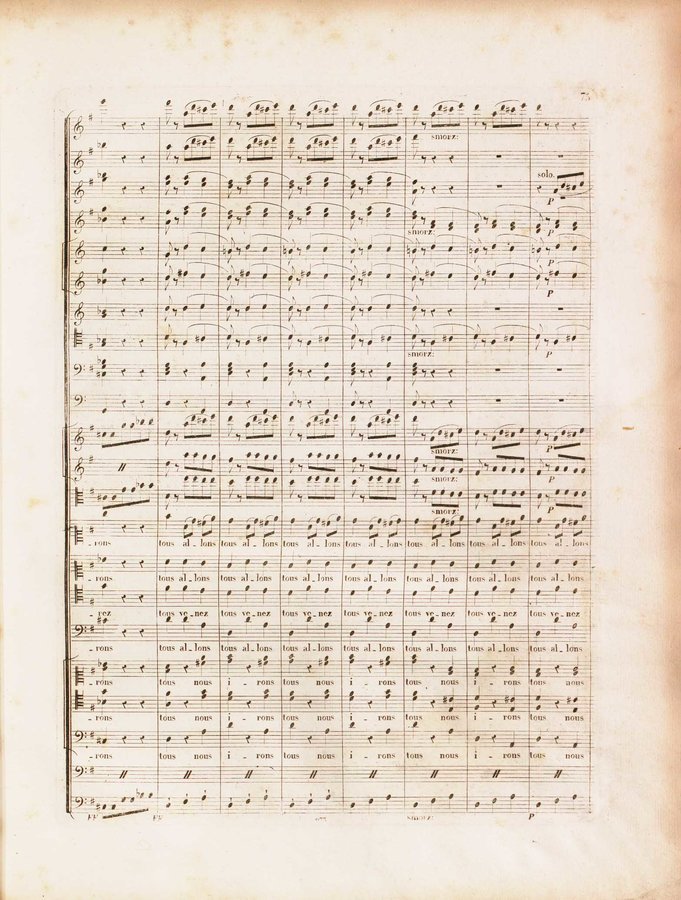 75
smorz:
solo.
P
smorz:
P
P
smorz:
P
smorz:
P
smorz:
smorz:
P
_ rons tous al_lons tous al_lons tous al_lons tous al_lons tous al_lons tous al_lons tous al_lons
_ rons tous al_lons tous al_lons tous al_lons tous al_lons tous al_lons tous al_lons tous al_lons
_ rez tous ve_nez tous ve_nez tous ve_nez tous ve_nez tous ve_nez tous ve_nez tous ve_nez
_ rons tous al_lons tous al_lons tous al_lons tous al_lons tous al_lons tous al_lons tous al_lons
_ rons tous nous i _ rons tous nous i _ rons tous nous i _ rons tous nous
_ rons tous nous i _ rons tous nous i _ rons tous nous i _ rons tous nous
_ rons tous nous i _ rons tous nous i _ rons tous nous i _ rons tous nous
FF FF smorz: P